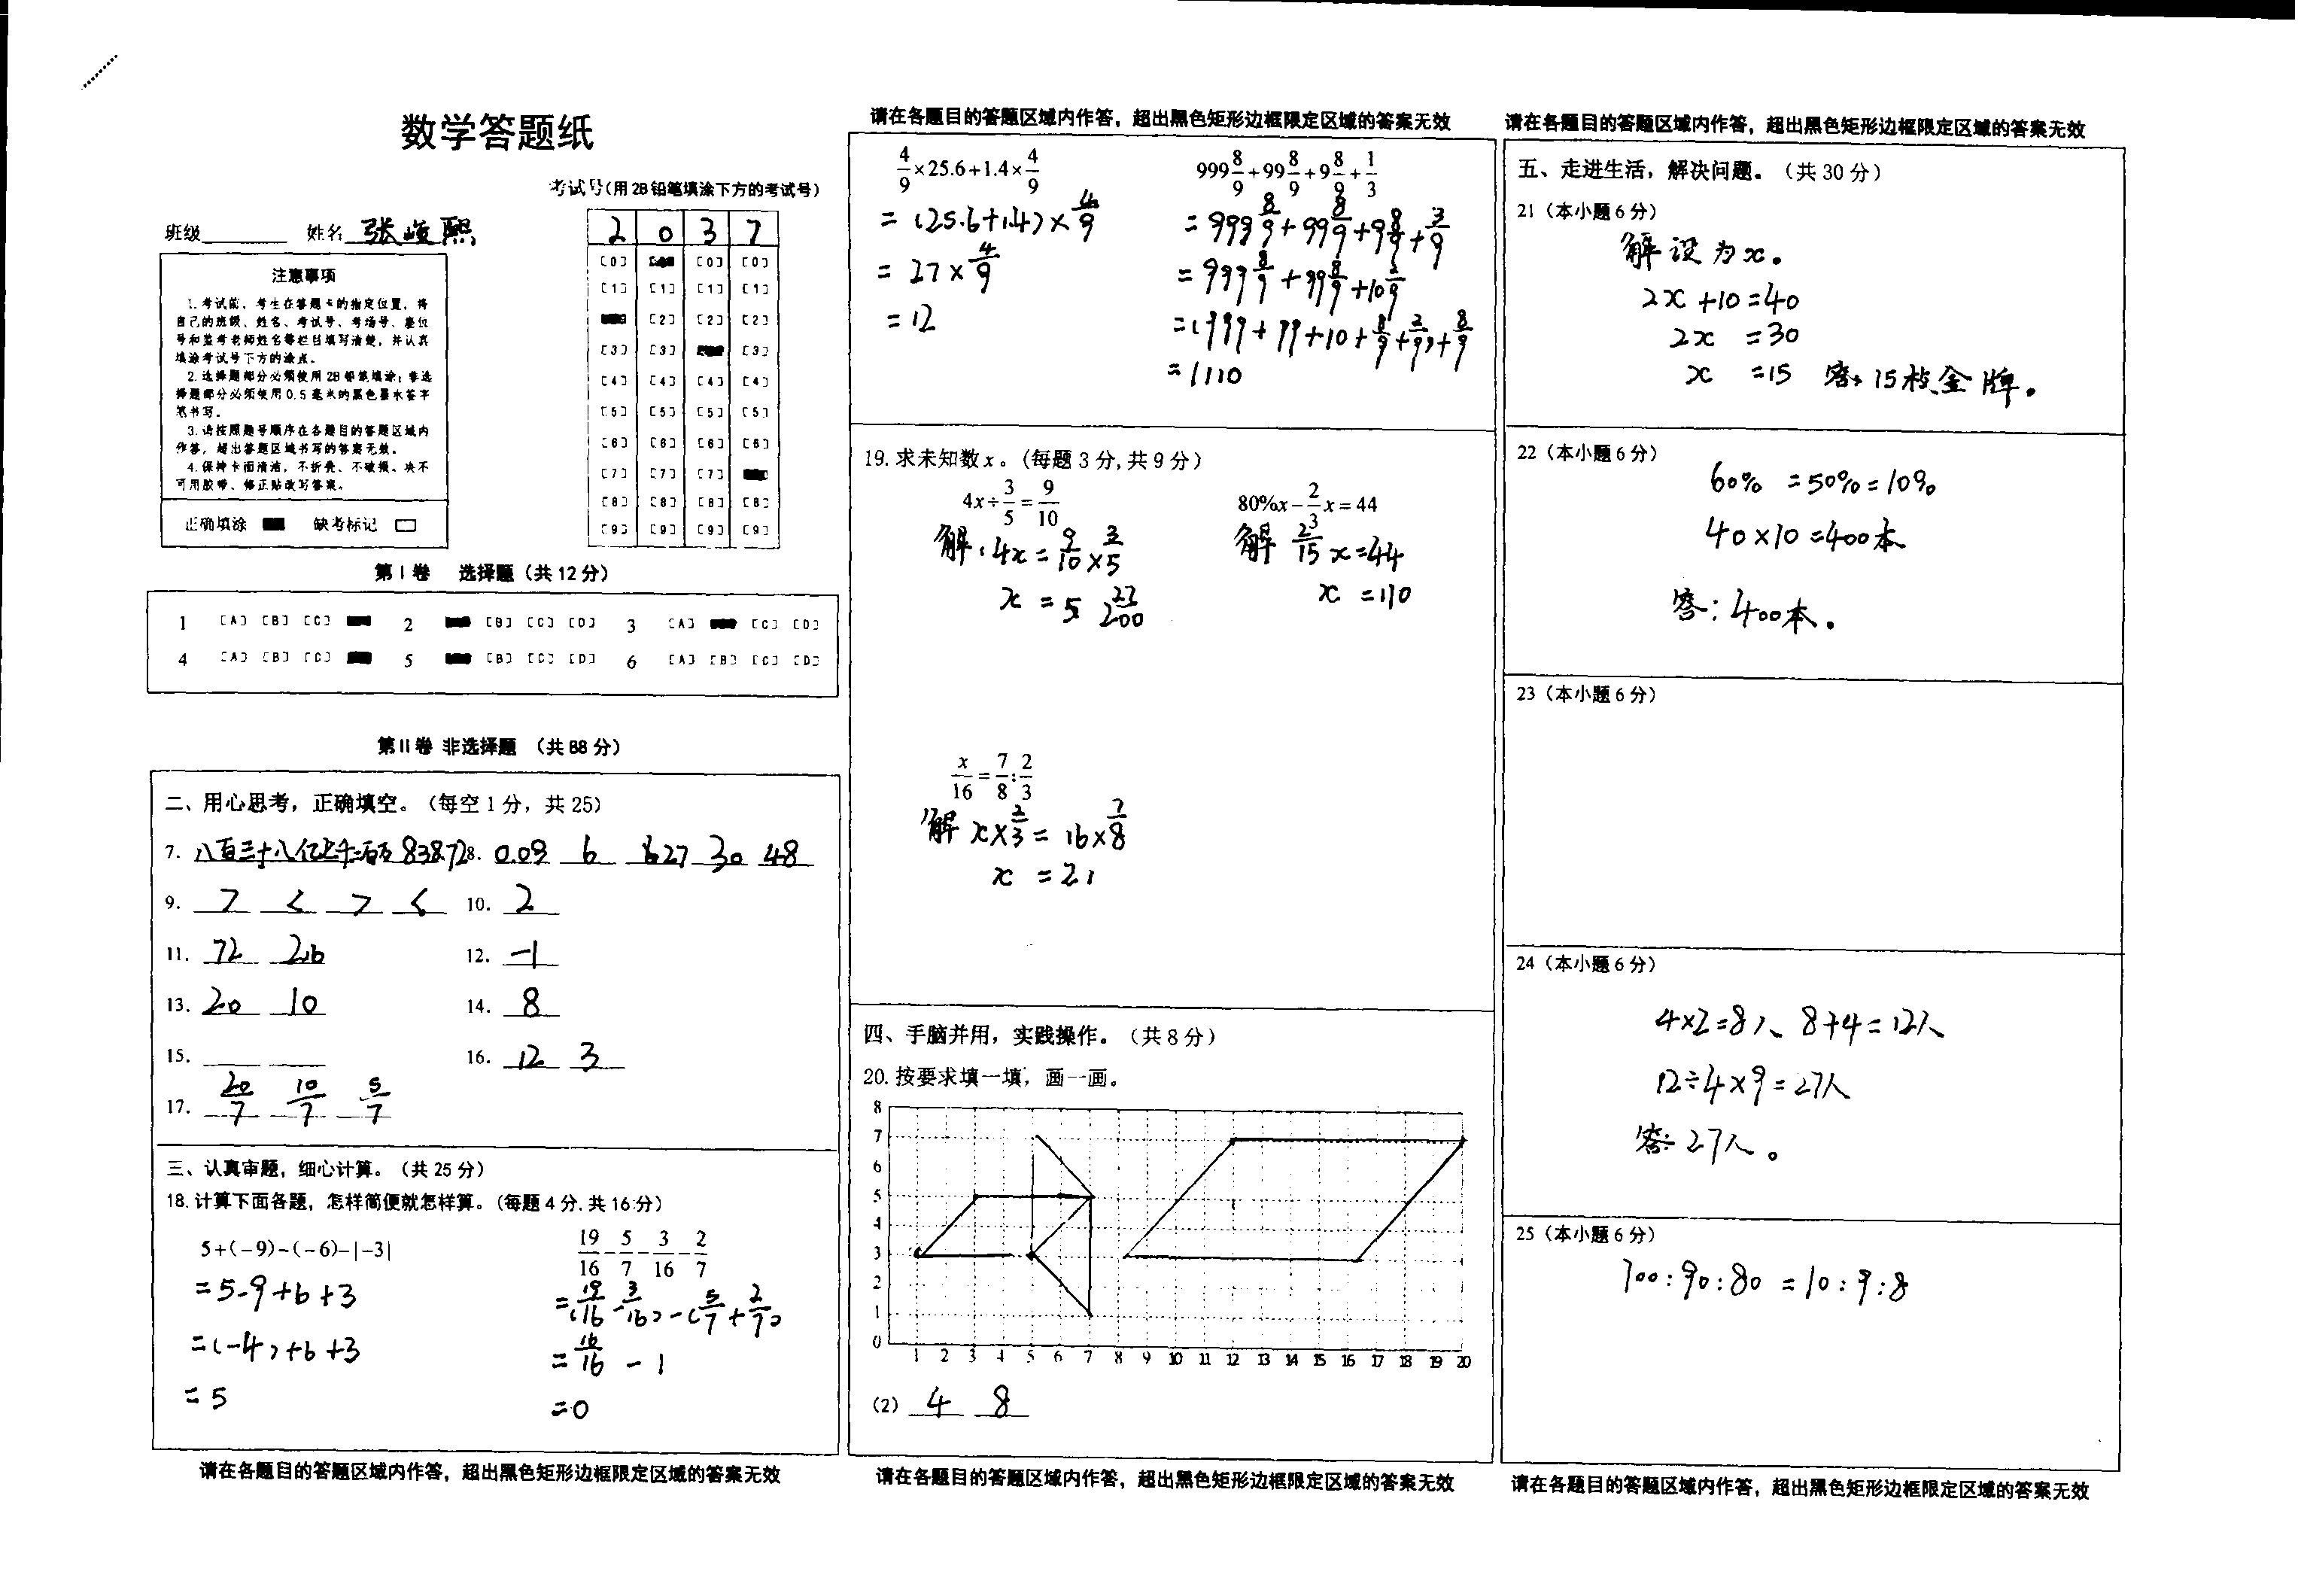 数学答题纸
考试号(用2B铅笔填涂下方的考试号)
班级 姓名 张峻熙
2 0 3 7
[0] [0] [0]
[1] [1] [1] [1]
[2] [2] [2]
[3] [3] [3]
[4] [4] [4] [4]
[5] [5] [5] [5]
[6] [6] [6] [6]
[7] [7] [7]
[8] [8] [8] [8]
[9] [9] [9] [9]
注意事项
1.考试前,考生在答题卡的指定位置,将
自己的班级、姓名、考试号、考场号、座位
号和监考老师姓名等栏目填写清楚,并认真
填涂考试号下方的涂点。
2.选择题部分必须使用2B铅笔填涂;非选
择题部分必须使用0.5毫米的黑色墨水签字
笔书写。
3.请按照题号顺序在各题目的答题区域内
作答,超出答题区域书写的答案无效。
4.保持卡面清洁,不折叠、不破损、决不
可用胶带、修正贴改写答案。
正确填涂 缺考标记
第I卷 选择题(共12分)
1 [A] [B] [C] 2 [B] [C] [D] 3 [A] [C] [D]
4 [A] [B] [C] 5 [B] [C] [D] 6 [A] [B] [C] [D]
第II卷 非选择题 (共88分)
二、用心思考,正确填空。(每空1分,共25)
7. 八百三十八亿七千二百万 838.72 8. 0.09 6 627 30 48
9. > < > < 10. 2
11. 72 26 12. -1
13. 20 10 14. 8
15. 16. 12 3
17. 20/7 10/7 5/7
三、认真审题,细心计算。(共25分)
18.计算下面各题,怎样简便就怎样算。(每题4分,共16分)
5+(-9)-(-6)-|-3| 19/16-5/7-3/16-2/7
=5-9+6+3 =(19/16-3/16)-(5/7+2/7)
=(-4)+6+3 =16/16-1
=5 =0
请在各题目的答题区域内作答,超出黑色矩形边框限定区域的答案无效
请在各题目的答题区域内作答,超出黑色矩形边框限定区域的答案无效
4/9×25.6+1.4×4/9 999 8/9+99 8/9+9 8/9+1/3
=(25.6+1.4)×4/9 =999 8/9+99 8/9+9 8/9+3/9
=27×4/9 =999 8/9+99 8/9+10 2/9
=12 =(999+99+10+8/9+2/9)+8/9
=1110
19.求未知数x。(每题3分,共9分)
4x÷3/5=9/10 80%x-2/3x=44
解:4x=9/10×3/5 解 2/15x=44
x=5 27/200 x=110
x/16=7/8:2/3
解 x×2/3=16×7/8
x=21
四、手脑并用,实践操作。(共8分)
20.按要求填一填,画一画。
8
7
6
5
4
3
2
1
0
1 2 3 4 5 6 7 8 9 10 11 12 13 14 15 16 17 18 19 20
(2) 4 8
请在各题目的答题区域内作答,超出黑色矩形边框限定区域的答案无效
请在各题目的答题区域内作答,超出黑色矩形边框限定区域的答案无效
五、走进生活,解决问题。(共30分)
21(本小题6分)
解 设为x。
2x+10=40
2x=30
x=15 答:15枚金牌。
22(本小题6分)
60% =50%=10%
40×10=400本
答:400本。
23(本小题6分)
24(本小题6分)
4×2=8人 8+4=12人
12÷4×9=27人
答:27人。
25(本小题6分)
100:90:80=10:9:8
请在各题目的答题区域内作答,超出黑色矩形边框限定区域的答案无效